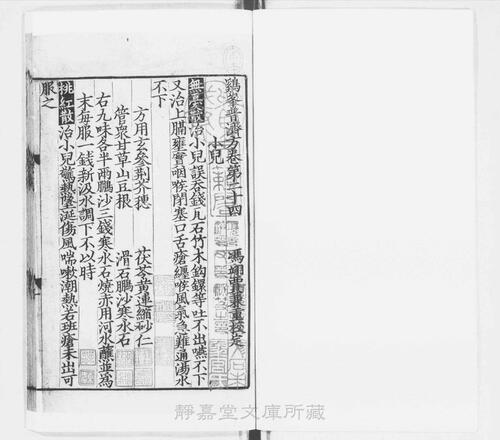 鷄峯普濟方卷第二十四　馮翊賈兼重校定
小兒
無憂散治小兒誤吞錢瓦石竹木鈎鐶等吐不出嚥不下
又治上膈壅實咽喉閉塞口舌瘡纏喉風氣急難通湯水
不下
方用玄參荆芥穗　茯苓黃連縮砂仁
管衆甘草山豆根　滑石鵬沙寒水石
右九味各半兩鵬沙三錢寒水石燒赤用河水蘸並爲
末每服一錢新汲水調下不以時
排紅散治小兒驚熱墜涎傷風喘嗽潮熱若班瘡未出可
服之
靜嘉堂文庫所藏